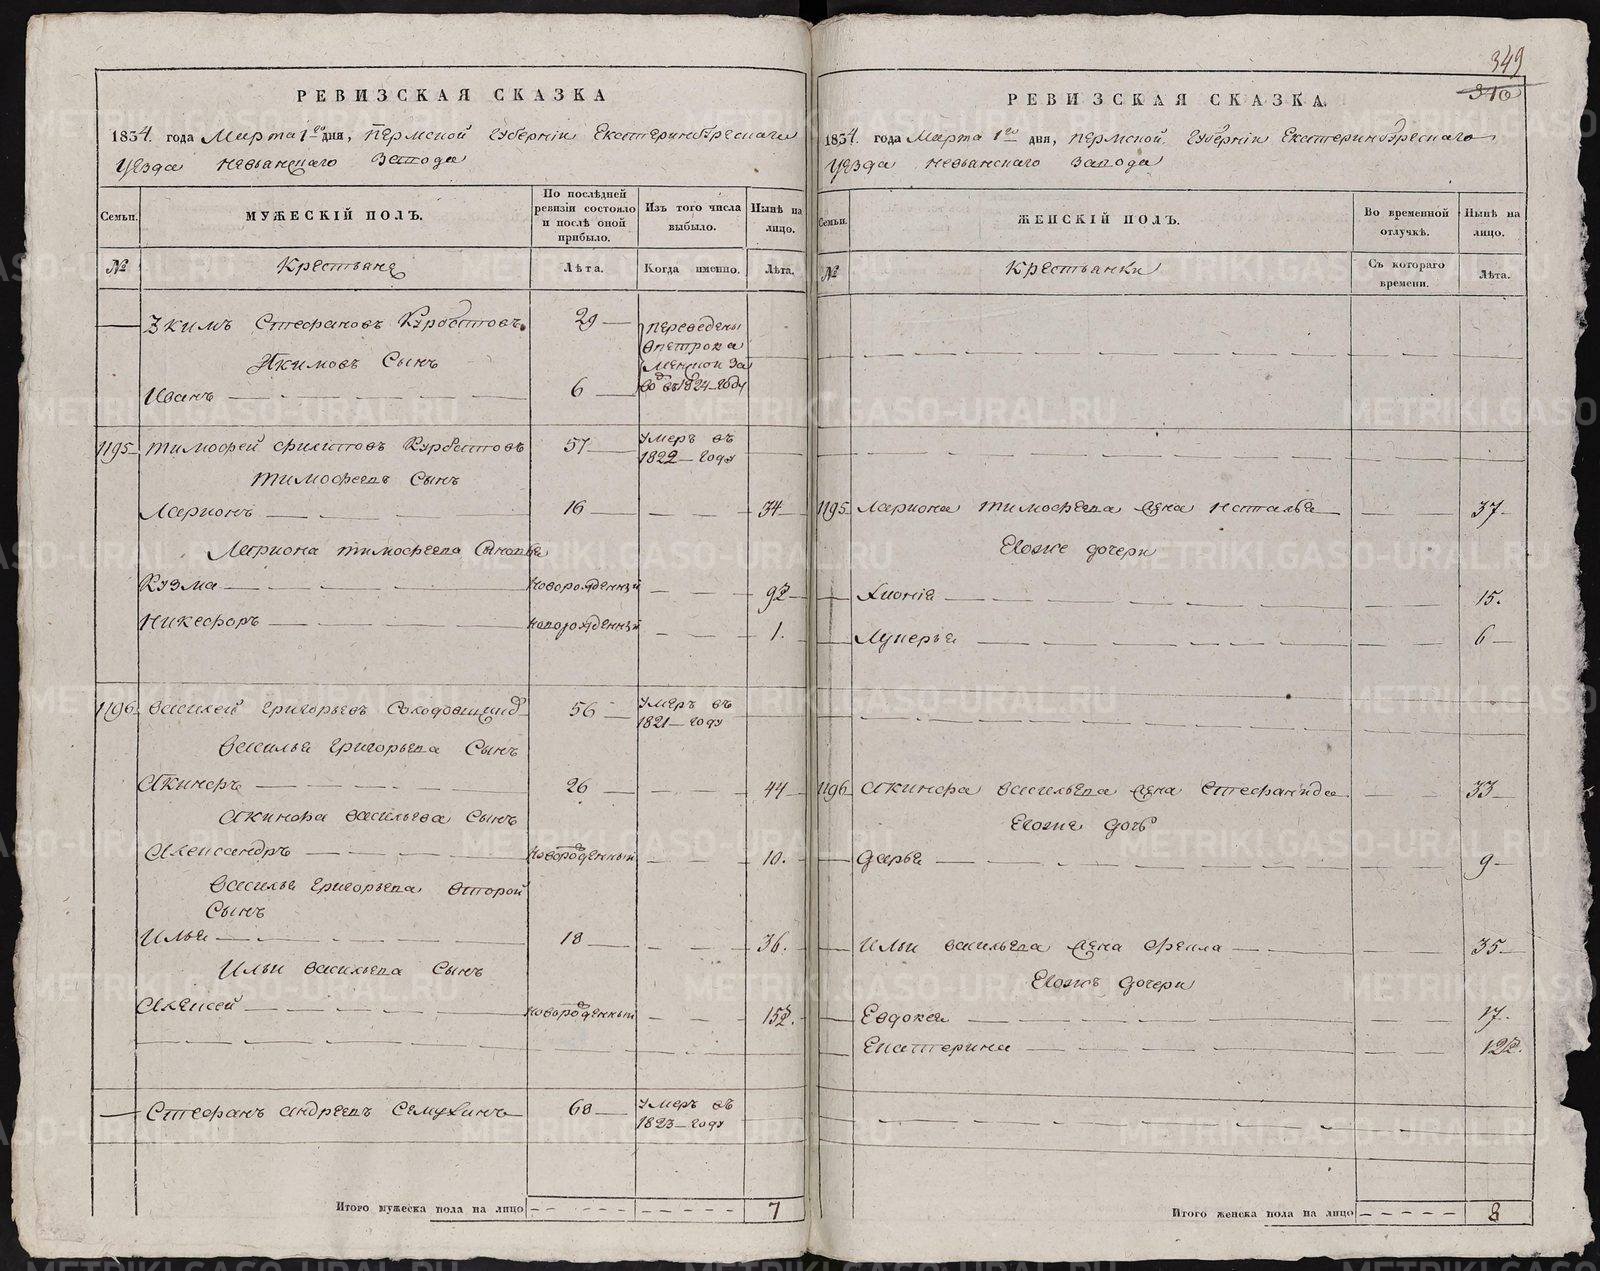 349
310
РЕВИЗСКАЯ СКАЗКА
1834. года Марта 1го дня, Пермской Губернiи Екатеринбурскаго
Уезда Невьянскаго Завода
Семьи.
МУЖЕСКIЙ ПОЛЪ.
По послѣдней ревизiи состояло и послѣ оной прибыло.
Изъ того числа выбыло.
Нынѣ на лицо.
№
Крестьяне
Лѣта.
Когда именно.
Лѣта.
Екимъ Стефановъ Курбатовъ 29 переведены
Якимовъ Сынъ
в петрока
менской за
Иванъ 6 водъ въ 1824 году
1195 Тимофей Филиповъ Курбатовъ 57 умеръ въ
1822 году
Тимофеевъ Сынъ
Ларионъ 16 34
Лариона Тимофеева Сыновья
Кузма новорожденный 9½
Никефоръ новорожденный 1.
1196 Василей Григорьевъ 56 умеръ въ
1821 году
Василья Григорьева Сынъ
Акинфъ 26 44
Акинфа Васильева Сынъ
Александръ новорожденный 10.
Василья Григорьева второй
Сынъ
Илья 18 36.
Ильи Васильева Сынъ
Алексей новорожденный 15½.
Стефанъ Андреевъ Семухинъ 68 умеръ въ
1823 году
Итого мужеска пола на лицо 7
РЕВИЗСКАЯ СКАЗКА
1834. года Марта 1го дня, Пермской Губернiи Екатеринбурскаго
Уезда Невьянскаго Завода
Семьи.
ЖЕНСКIЙ ПОЛЪ.
Во временной отлучкѣ.
Нынѣ на лицо.
№
Крестьянки
Съ котораго времени.
Лѣта.
1195 Лариона Тимофеева жена Наталья 37
Ево же дочери
Хионiя 15.
Лукерья 6
1196 Акинфа Васильева жена Стефанида 33
Ево же дочь
Дарья 9
Ильи Васильева жена Фекла 35
Ево же дочери
Евдокея 17.
Екатерина 12½.
Итого женска пола на лицо 8
METRIKI.GASO-URAL.RU